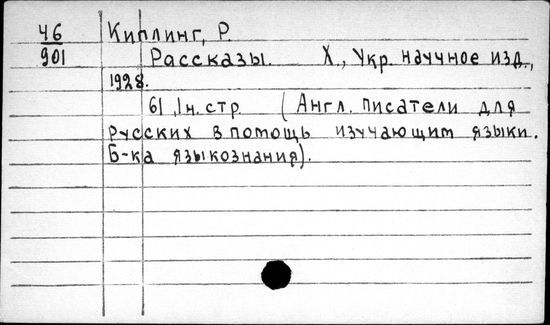 46
901
Киплинг, Р
Рассказы. Х., Укр. научное изд.,
1928.
61, Iн. стр. (Англ. писатели для
русских в помощь изучающим языки.
Б-ка языкознания).